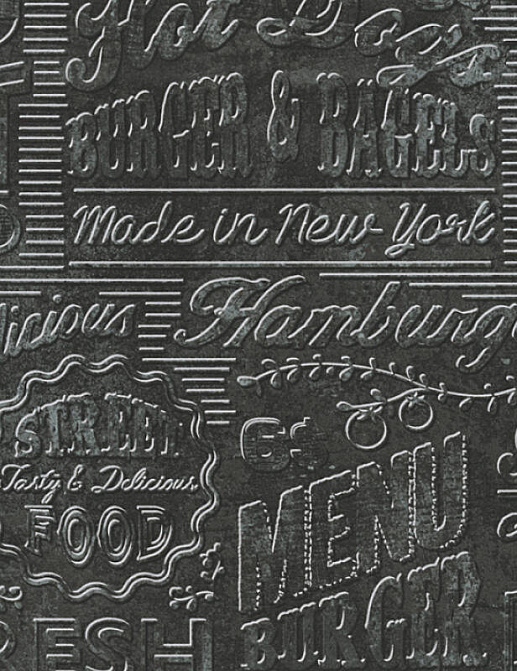 Hot Dogs
BURGER & BAGELS
Made in New York
licious
Hamburg
STREET
Tasty & Delicious
FOOD
6$
MENU
BURGER
ESH